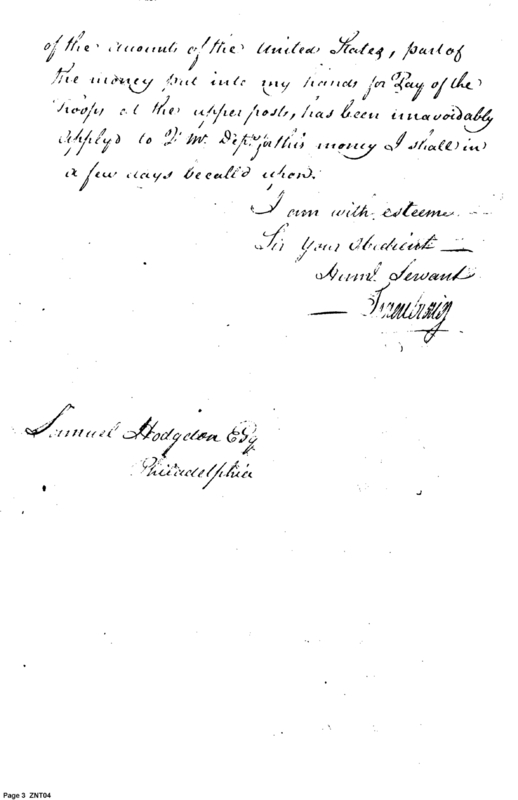 of the amounts of the United States, part of
the money put into my hands for Pay of the
Troops at the upper posts, has been unavoidably
applyd to Q: Mr. Dept. for this money I shall in
a few days be calld upon.
I am with esteeme
Sir Your Obedient
Huml. Servant
Samuel Hodgdon Esq
Philadelphia
Page 3 ZNT04